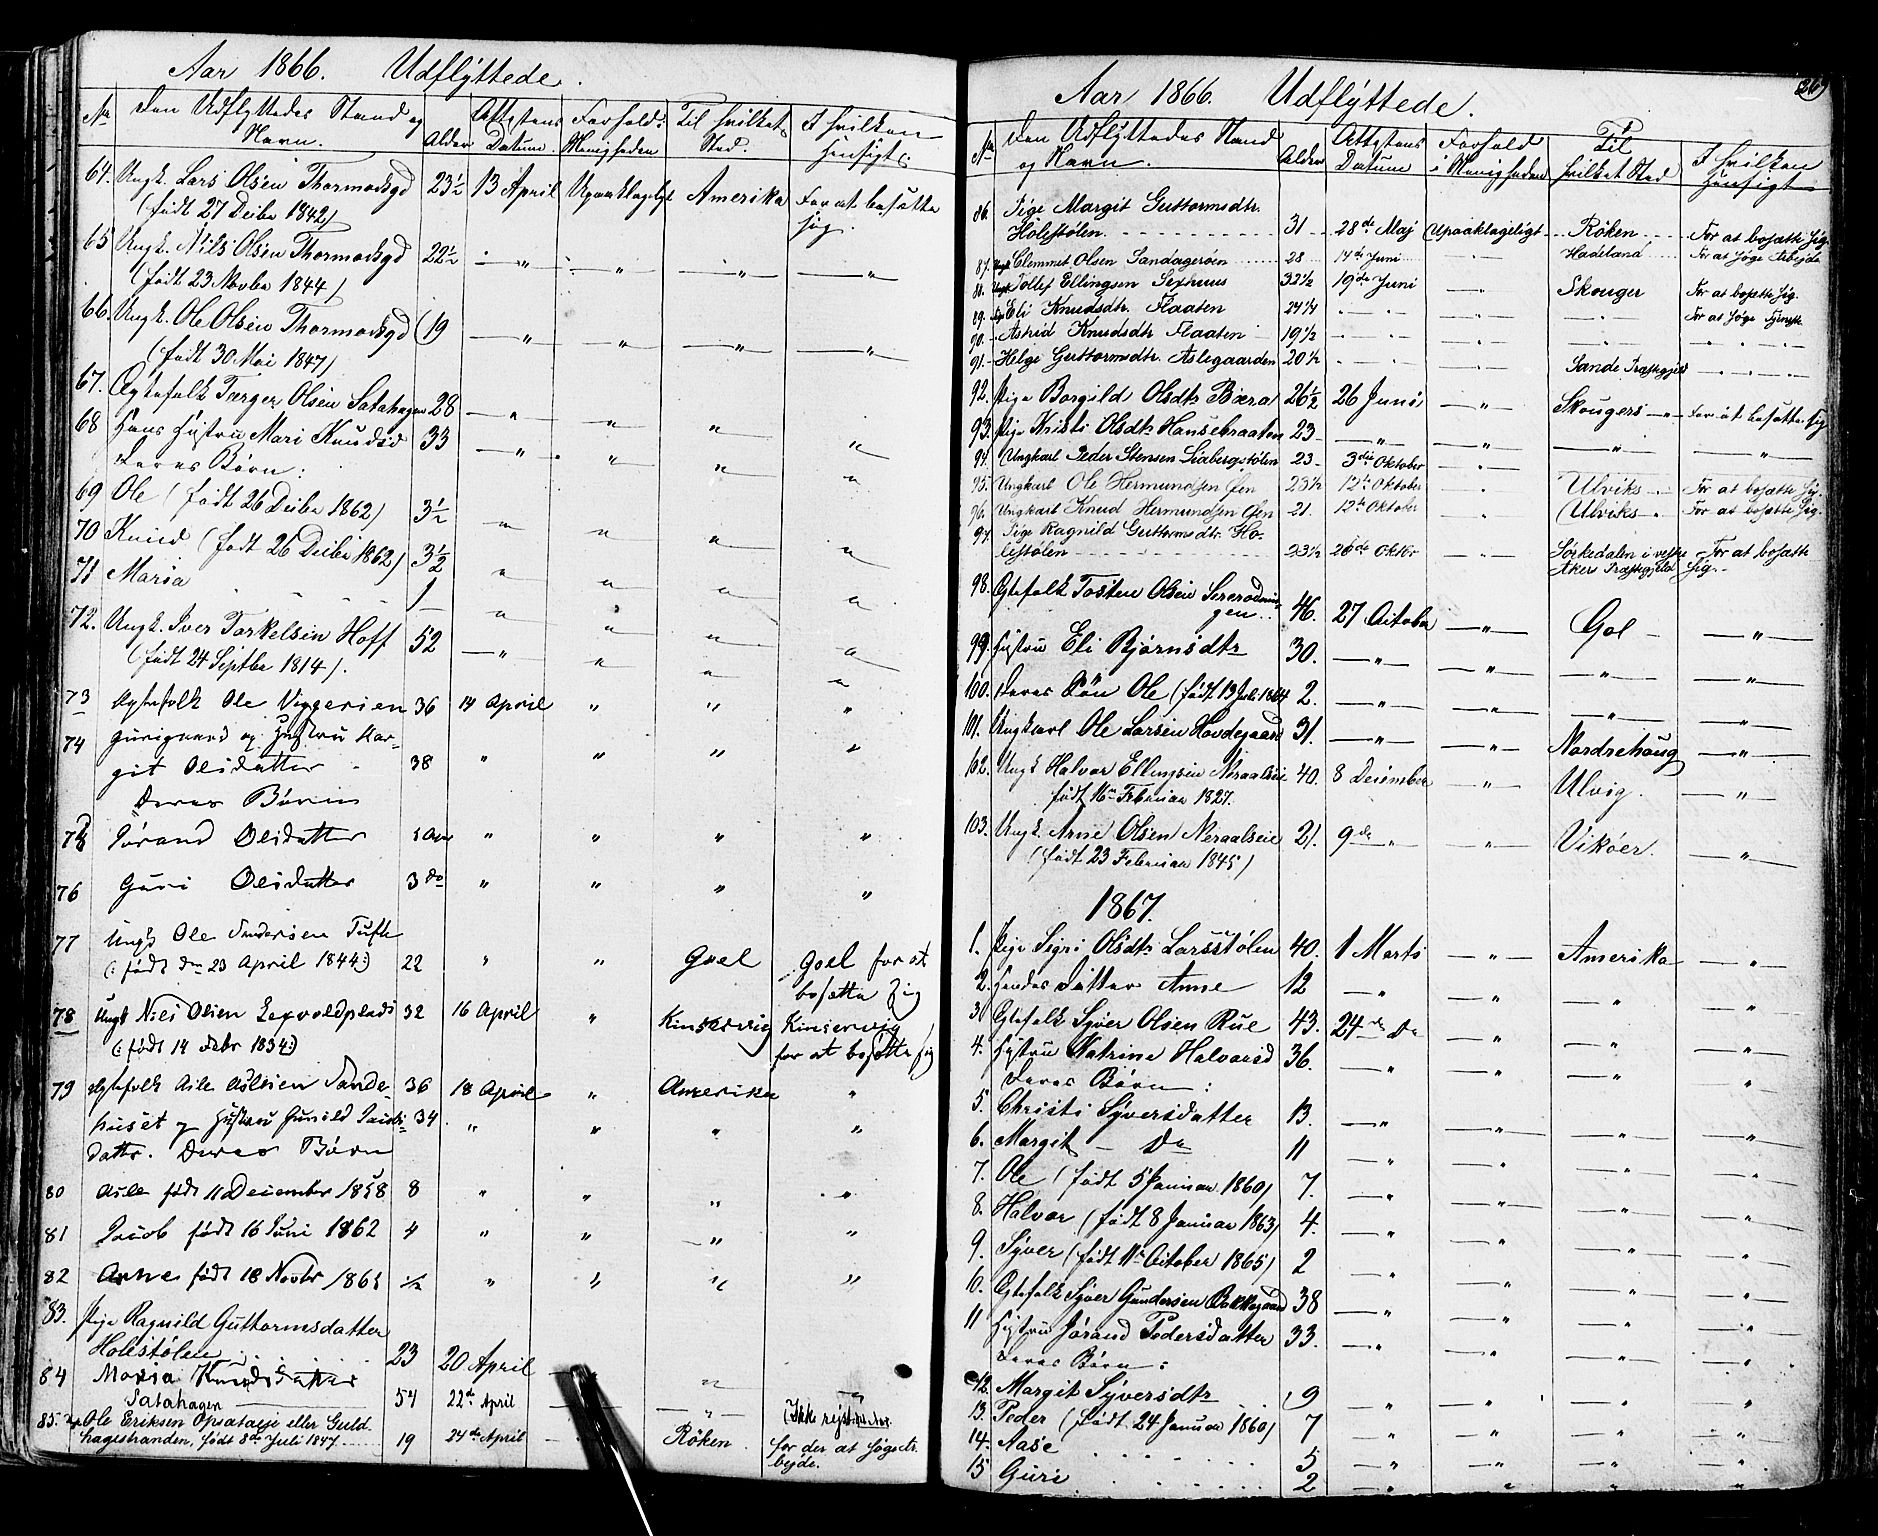 Aar 1866. Udflyttede.
No Den Udflyttedes Stand og Navn. Alder Attestens Datum. Forhold i Menigheden Til hvilket Sted. I hvilken Hensigt.
64. Ungk. Lars Olsen Thormodsgd 23½ 13 April Upaaklageligt Amerika For at bosætte
(født 27 Decbr 1842) sig.
65 Ungk. Nils Olsen Thormodsgd 22½ — " — " — " — "
(født 23 Novbr 1844)
66. Ungk. Ole Olsen Thormodsgd 19 — " — " — " — "
(født 30 Mai 1847)
67. Egtefolk Torger Olsen Satahagen 28 — " " " "
68 Hans Hustru Mari Knudsd 33 — " " " "
Deres Børn:
69 Ole (født 26 Decbr 1862) 3½ " " " "
70 Knud (født 26 Decbr 1862) 3½ " " " "
71 Maria 1 " " " "
72. Ungk. Iver Torkelsen Hoff 52 — " " " "
(født 24 Septbr 1814).
73 Egtefolk Ole Viggersen 36 14 April " " "
74 Gurigaard og Hustru Mar-
git Olsdatter 38 " " " "
Deres Børn
75 Jørand Olsdatter 5 Aar " " " "
76 Guri Olsdatter 3 do " " " "
77 Ungk Ole Andersen Tufte
(: født den 23 April 1844:) 22 " " Goel Goel for at
bosætte sig
78 Ungk Nils Olsen 32 16 April " Kinservig Kinservig
(: født 14 Febr 1834:) for at bosætte sig
79 Egtefolk Asle Aslesen Sande- 36 18 April " Amerika "
huset og Hustru Gunild Jacobs- 34 " " " "
datter. Deres Børn
80 Asle født 11 December 1858 8 " " " "
81 Jacob født 16 Juni 1862 4 " " " "
82 Arne født 18 Novbr 1865 ½ " " " "
83. Pige Ragnild Guttormsdatter
Holestølen 23 20 April " "
84 Maria Knudsdatter
Satahagen 54 22de April — " (Ikke rejst
85. Ole Eriksen Opsataeie eller Guld-
hagestranden, født 8de Juli 1847 19 24de April Røken. for der at søge Ar-
bejde.
Aar 1866. Udflyttede. 269
No Den Udflyttedes Stand og Navn. Alder Attestens Datum Forhold i Menigheden Til hvilket Sted I hvilken Hensigt
86. Pige Margit Guttormsdtr.
Holestølen. 31 28de Maj Upaaklageligt Røken For at bosætte sig.
87. Ungk Clemmet Olsen Sandageroen 28 14de Juni " Hadeland For at søge Arbejde
88. Ungk Tollef Ellingsen Sexhuus 32½ 19de Juni — " — Skouger For at bosætte sig.
89. Pige Eli Knudsdtr. Flaaten 24¼ — " — " — " — For at søge Tjeneste
90. — Astrid Knudsdtr Flaaten 19½ — " — " — " — "
91. — Helge Guttormsdtr. Aslegaarden 20½ " " Sande Præstegjeld — " —
92. Pige Borgild Olsdtr Bæra 26½ 26 Juni — " — Skougers — " — For at bosætte sig
93. Pige Kristi Olsdtr Hansebraaten 23 — " — " — " — "
94. Ungkarl Peder Stensen Liabergstølen 23 3die Oktober — " —
95. Ungkarl Ole Hermundsen Øen 23½ 12te Oktober " Ulviks For at bosætte sig.
96. Ungkarl Knud Hermundsen Øen 21. 12te Oktober " Ulviks For at bosætte sig.
97 Pige Ragnild Guttormsdtr. Ho-
lestølen 23½ 26de Oktbr — " — Sørkedalen i vestre For at bosætte
Akers Præstegjeld sig.
98. Egtefolk Tosten Olsen
gen 46. 27 October — " — Gol — " —
99. Hustru Eli Bjørnsdtr 30. — " — " — " — "
100. Deres Søn Ole (født 13 Juli 1864 2. — " — " — " — "
101. Ungkarl Ole Larsen Hovdegaard 31. — " — " — Nordrehoug — " —
102. Ungk Halvor Ellingsen Neraalseie 40. 8 December — " — Ulvig. — " —
født 16de Februar 1827.
103. Ungk. Arne Olsen Neraalseie 21. 9de " — " — Vikøer. — " —
(født 23 Februar 1845)
1867.
1. Pige Sigri Olsdtr Larsstølen 40. 1 Marts — " — Amerika — " —
2. Hendes Datter Anne 12 — " — " — " — "
3 Egtefolk Syver Olsen Rue 43. 24de Do — " — " — "
4. Hustru Katrine Halvorsd 36. — " — " — " — "
Deres Børn:
5. Christi Syversdatter 13. — " — " — " — "
6. Margit — Do 11 — " — " — " — "
7. Ole (født 5 Januar 1860) 7. — " — " — " — "
8. Halvor (født 8 Januar 1863) 4. — " — " — " — "
9. Syver (født 11te October 1865) 2 — " — " — " — "
10. Egtefolk Syver Gundersen Bakkegaard 38 — " — " — " — "
11 Hustru Jørand Pedersdatter 33. — " — " — " — "
Deres Børn:
12. Margit Syversdtr 9 — " " " "
13. Peder (født 24 Januar 1860) 7 — " — " — " — "
14. Aase 5 — " — " — " — "
15 Guri 2 — " " " "